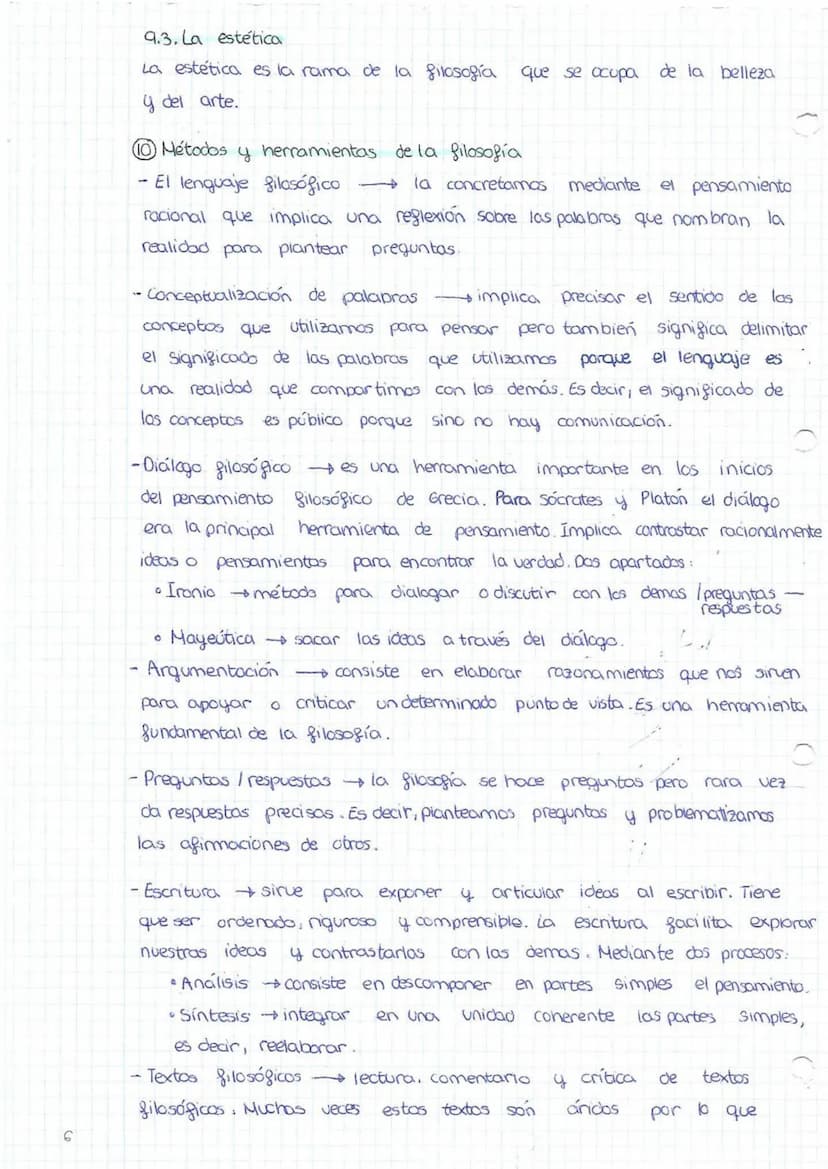 9.3. La estética
La estética es la rama de la filosofía que se ocupa de la belleza
y del arte.
⑩ Métodos y herramientas de la filosofía
- El lenguaje filosófico → la concretamos mediante el pensamiento
racional que implica una reflexión sobre las palabras que nombran la
realidad para plantear preguntas.
- Conceptualización de palabras → implica precisar el sentido de los
conceptos que utilizamos para pensar pero también significa delimitar
el significado de las palabras que utilizamos porque el lenguaje es
una realidad que compartimos con los demás. Es decir, el significado de
los conceptos es público porque sino no hay comunicación.
- Diálogo filosófico → es una herramienta importante en los inicios
del pensamiento filosófico de Grecia. Para Sócrates y Platón el diálogo
era la principal herramienta de pensamiento. Implica contrastar racionalmente
ideas o pensamientos para encontrar la verdad. Dos apartados:
• Ironía → método para dialogar o discutir con los demas / preguntas —
respuestas
• Mayeútica → sacar las ideas a través del diálogo.
- Argumentación → consiste en elaborar razonamientos que nos sirven
para apoyar o criticar un determinado punto de vista. Es una herramienta
fundamental de la filosofía.
- Preguntas / respuestas → la filosofía se hace preguntas pero rara vez
da respuestas precisas. Es decir, planteamos preguntas y problematizamos
las afirmaciones de otros.
- Escritura → sirve para exponer y articular ideas al escribir. Tiene
que ser ordenado, riguroso y comprensible. La escritura facilita explorar
nuestras ideas y contrastarlas con las demas. Mediante dos procesos:
• Análisis → consiste en descomponer en partes simples el pensamiento.
• Síntesis → integrar en una unidad coherente las partes simples,
es decir, reelaborar.
- Textos filosóficos → lectura. comentario y crítica de textos
filosóficos. Muchas veces estos textos son áridos por lo que
6